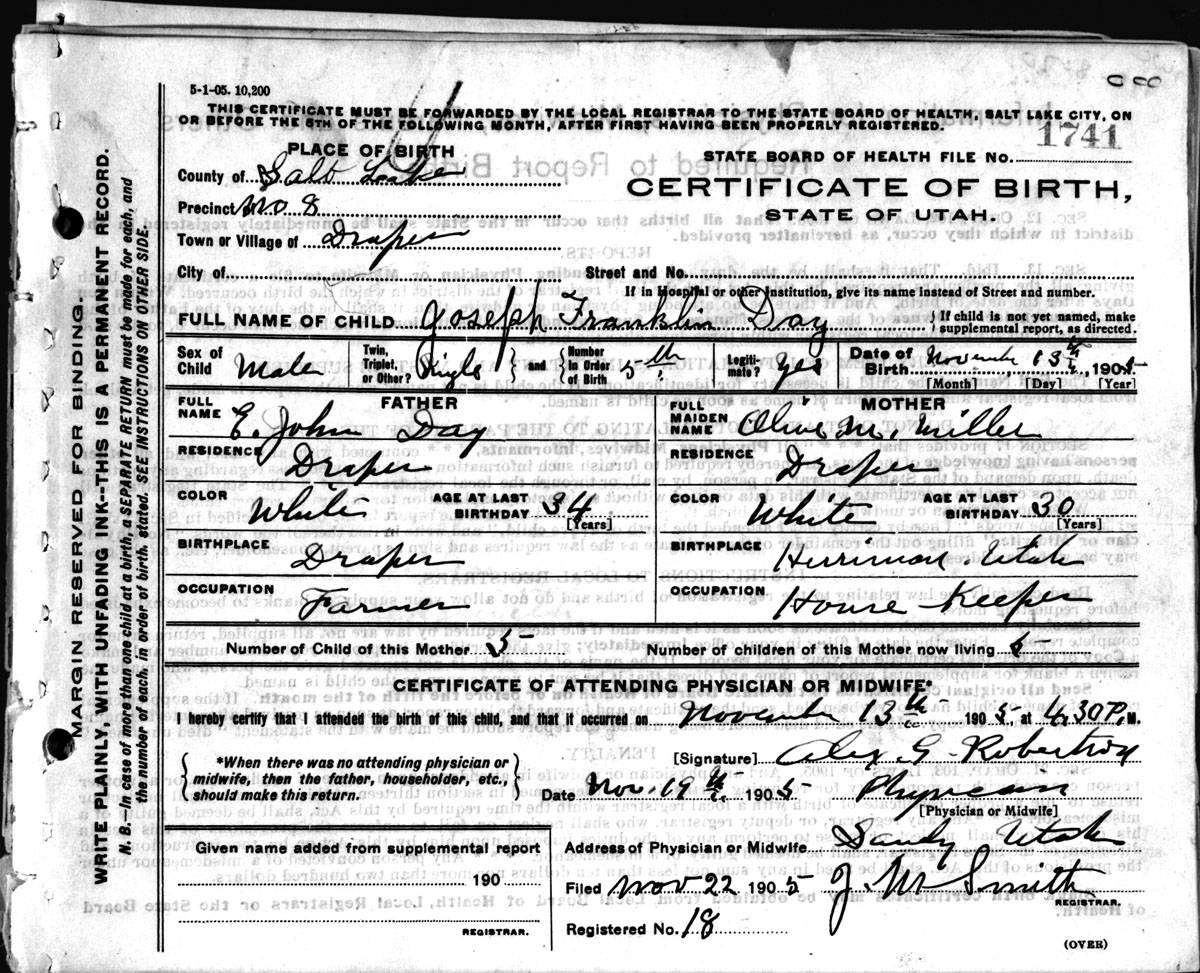 5-1-05. 10,200
THIS CERTIFICATE MUST BE FORWARDED BY THE LOCAL REGISTRAR TO THE STATE BOARD OF HEALTH, SALT LAKE CITY, ON
OR BEFORE THE 5TH OF THE FOLLOWING MONTH, AFTER FIRST HAVING BEEN PROPERLY REGISTERED.
PLACE OF BIRTH
STATE BOARD OF HEALTH FILE No. 1741
County of Salt Lake
CERTIFICATE OF BIRTH,
Precinct No 8
STATE OF UTAH.
Town or Village of Draper
City of Street and No.
If in Hospital or other Institution, give its name instead of Street and number.
FULL NAME OF CHILD Joseph Franklin Day { If child is not yet named, make supplemental report, as directed.
Sex of Child Male Twin, Triplet, or Other? Single } and { Number in Order of Birth 5th Legiti-mate? Yes Date of Birth November 13th, 1905
[Month] [Day] [Year]
FATHER MOTHER
FULL NAME E. John Day FULL MAIDEN NAME Olive M. Miller
RESIDENCE Draper RESIDENCE Draper
COLOR White AGE AT LAST BIRTHDAY 34 [Years] COLOR White AGE AT LAST BIRTHDAY 30 [Years]
BIRTHPLACE Draper BIRTHPLACE Herriman Utah
OCCUPATION Farmer OCCUPATION House Keeper
Number of Child of this Mother 5 Number of children of this Mother now living 5
CERTIFICATE OF ATTENDING PHYSICIAN OR MIDWIFE*
I hereby certify that I attended the birth of this child, and that it occurred on November 13th 1905, at 4.30 P. M.
{ *When there was no attending physician or midwife, then the father, householder, etc., should make this return. }
[Signature] Alex G. Robertson
Date Nov. 19th 1905 Physician
[Physician or Midwife]
Address of Physician or Midwife Sandy Utah
Given name added from supplemental report
190
Filed Nov 22 1905 J. M. Smith
REGISTRAR.
Registered No. 18
REGISTRAR.
(OVER)
MARGIN RESERVED FOR BINDING.
WRITE PLAINLY, WITH UNFADING INK--THIS IS A PERMANENT RECORD.
N. B.--In case of more than one child at a birth, a SEPARATE RETURN must be made for each, and
the number of each, in order of birth, stated. SEE INSTRUCTIONS ON OTHER SIDE.